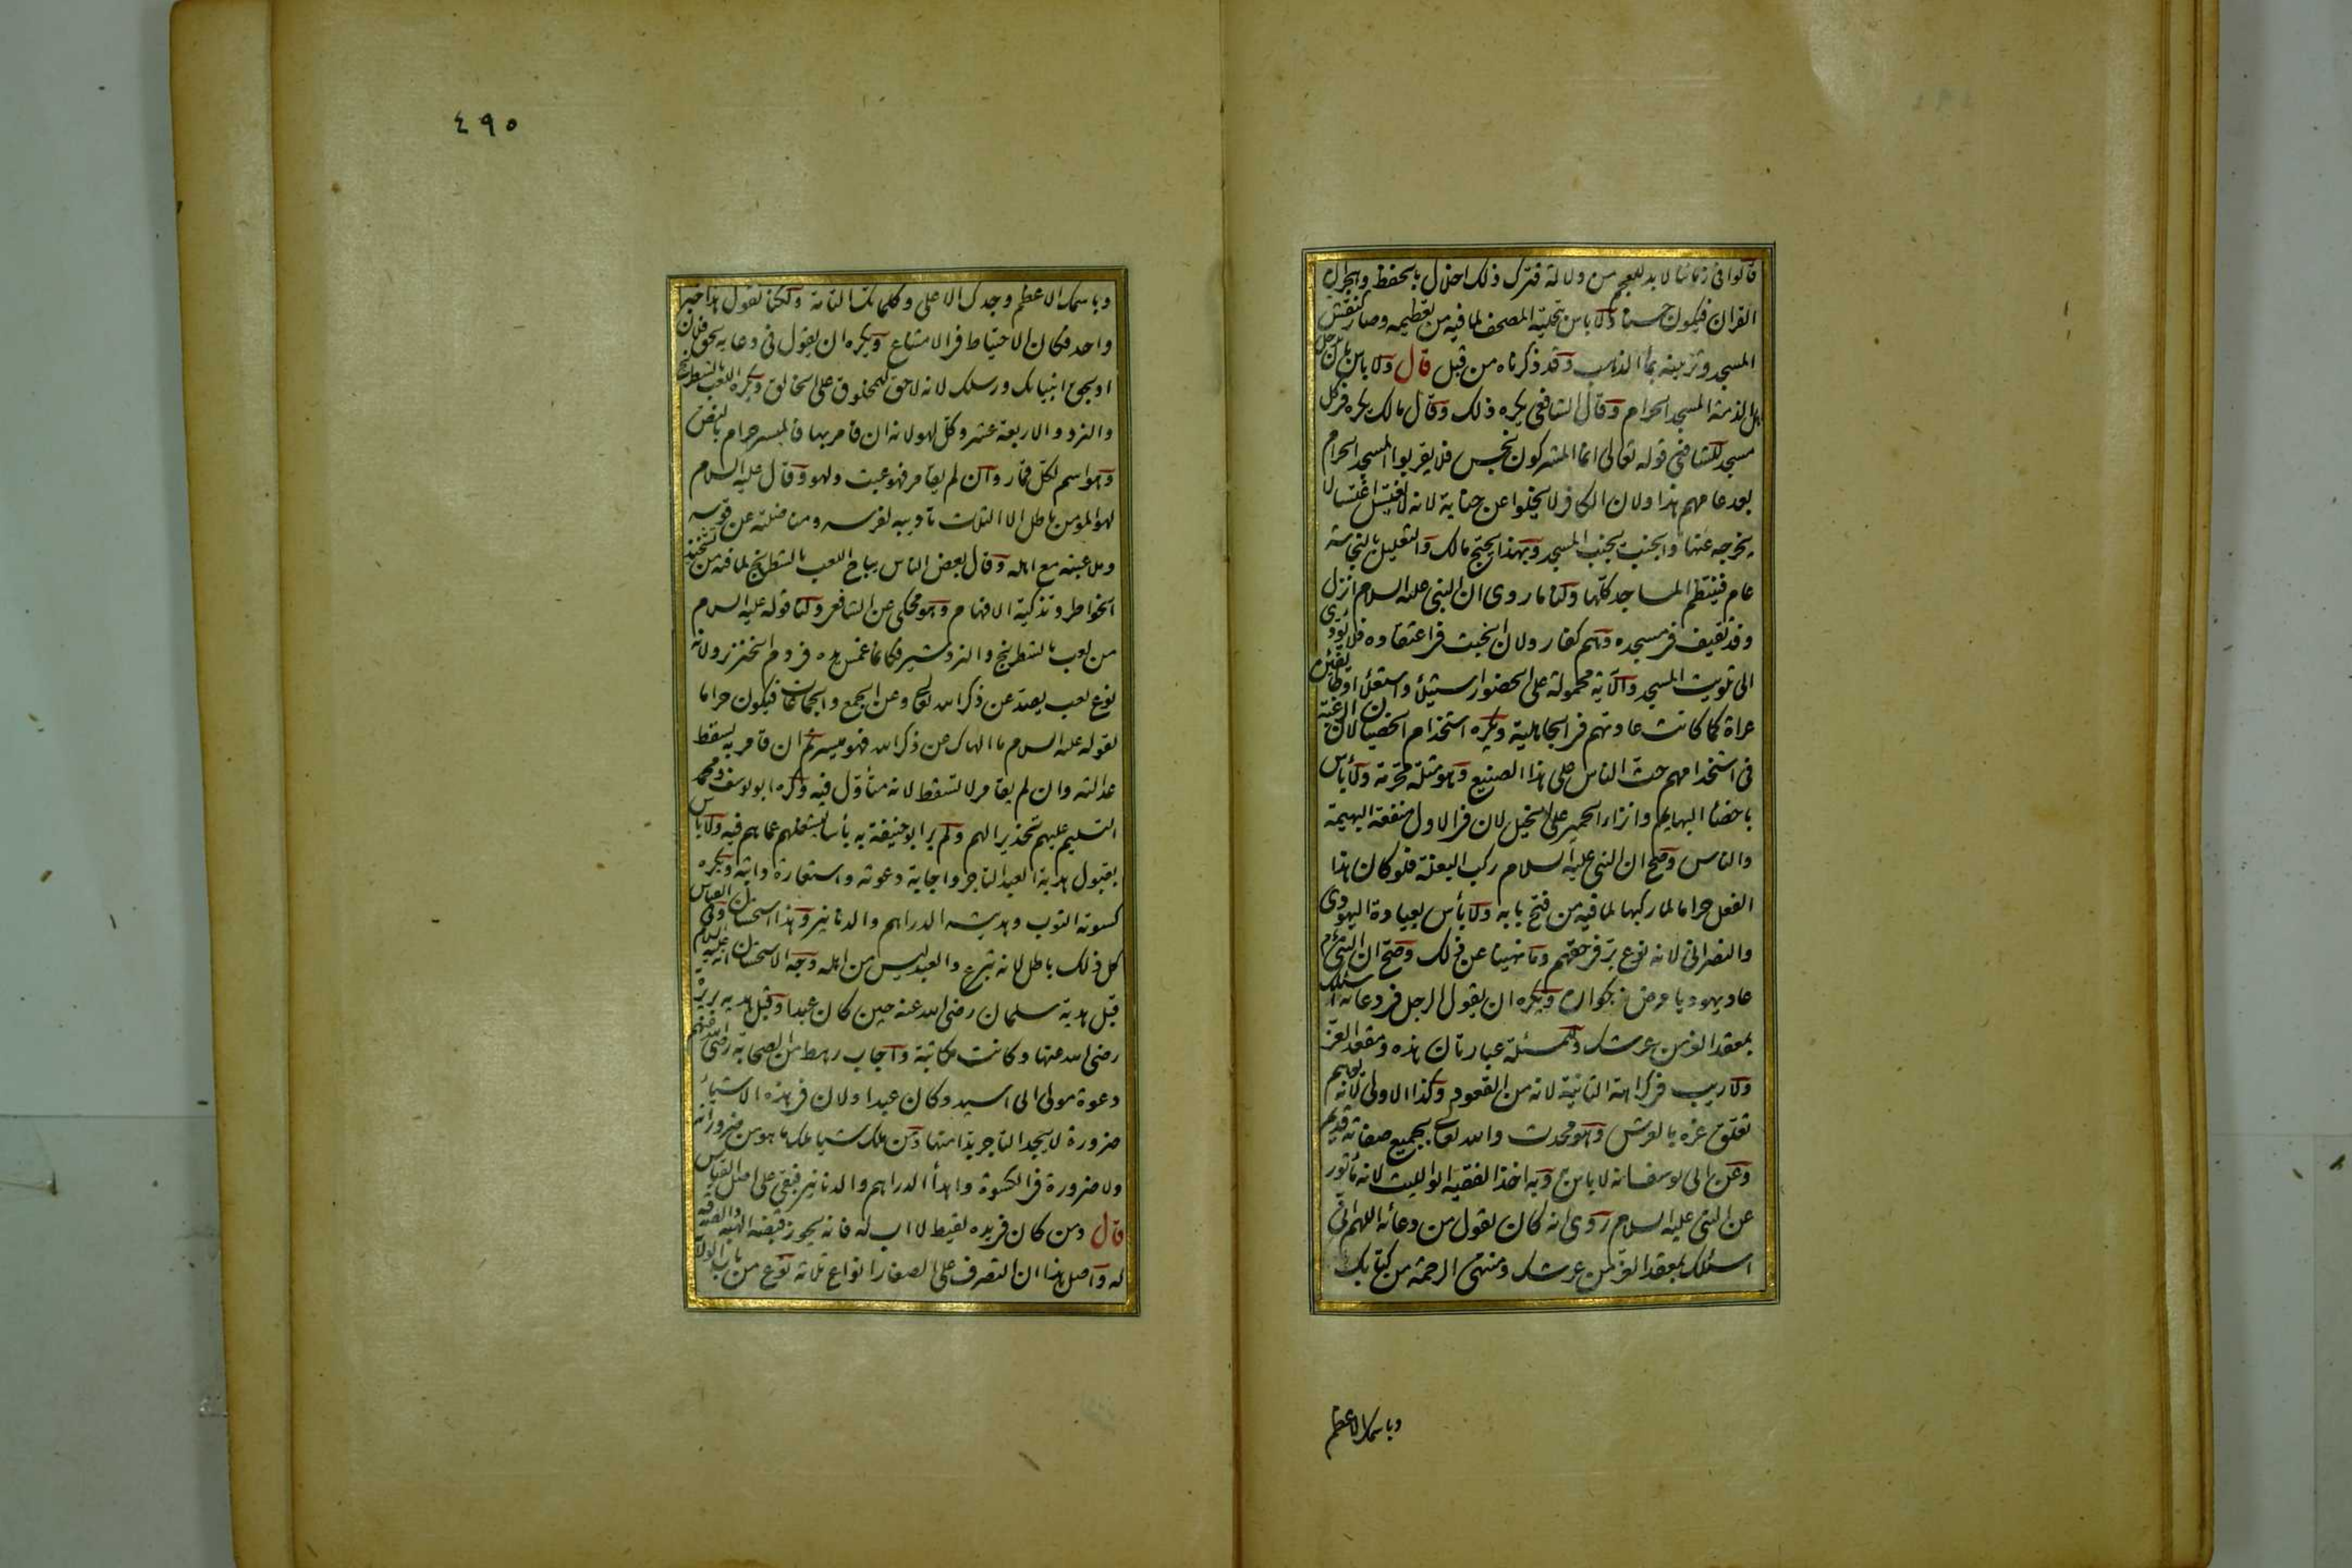 قالوا فى زماننا لا بد للعجم من دلالة فترك ذلك اخلال بالحفظ وهجران
القران فيكون حسنا ولا باس بتحلية المصحف لما فيه من تعظيمه وصار كنقش
المسجد وتزيينه بماء الذهب وقد ذكرناه من قبل قال ولا باس بان يدخل
اهل الذمة المسجد الحرام وقال الشافعى يكره ذلك وقال مالك يكره فى كل
مسجد للشافعى قوله تعالى انما المشركون نجس فلا يقربوا المسجد الحرام
بعد عامهم هذا ولان الكافر لا يخلوا عن جنابة لانه لا يغتسل اغتسالا
يخرجه عنها والجنب يجنب المسجد وبهذا يحتج مالك والتعليل بالنجاسة
عام فينتظم المساجد كلها ولنا ما روى ان النبى عليه السلام انزل
وفد ثقيف فى مسجده وهم كفار ولان الخبث فى اعتقاده فلا يودى
الى تلويث المسجد والآية محمولة على الحضور استيلاء واستعلاء او طائفين
عراة كما كانت عادتهم فى الجاهلية ويكره استخدام الخصيان لان الرغبة
فى استخدامهم حث الناس على هذا الصنيع وهو مثلة محرمة ولا بأس
باخصاء البهايم وانزاء الحمير على الخيل لان فى الاول منفعة البهيمة
والناس وصح ان النبى عليه السلام ركب البغلة فلو كان هذا
الفعل حراما لما ركبها لما فيه من فتح بابه ولا بأس بعيادة اليهودى
والنصرانى لانه نوع بر فى حقهم وما نهينا عن ذلك وصح ان النبى
عاد يهوديا مرض بجواره ويكره ان يقول الرجل فى دعائه اسئلك
بمعقد العز من عرشك وللمسئلة عبارتان هذه ومقعد العز
ولا ريب فى كراهة الثانية لانه من القعود وكذا الاولى لانه يوهم
تعلق عزه بالعرش وهو محدث والله تعالى بجميع صفاته قديم
وعن ابى يوسف انه لا باس به وبه اخذ الفقيه ابو الليث لانه مأثور
عن النبى عليه السلام روى انه كان يقول من دعائه اللهم انى
اسئلك بمعقد العز من عرشك ومنتهى الرحمة من كتابك
وباسمك الاعظم
٤٩٥
وباسمك الاعظم وجدك الاعلى وكلماتك التامة ولكنا نقول هذا خبر
واحد فكان الاحتياط فى الامتناع ويكره ان يقول فى دعايه بحق فلان
او بحق انبيائك ورسلك لانه لا حق للمخلوق على الخالق ويكره اللعب بالشطرنج
والنرد والاربعة عشر وكل لهو لانه ان قامر بها فالميسر حرام بالنص
وهو اسم لكل قمار وان لم يقامر فهو عبث ولهو وقال عليه السلام
لهو المؤمن باطل الا الثلاث تأديبه لفرسه ومناضلته عن قوسه
وملاعبته مع اهله وقال بعض الناس يباح اللعب بالشطرنج لما فيه من تشحيذ
الخواطر وتذكية الافهام وهو محكى عن الشافعى ولنا قوله عليه السلام
من لعب بالشطرنج والنردشير فكانما غمس يده فى دم الخنزير ولانه
نوع لعب يصد عن ذكر الله تعالى وعن الجمع والجماعات فيكون حراما
لقوله عليه السلام ما الهاك عن ذكر الله فهو ميسر ثم ان قامر به يسقط
عدالته وان لم يقامر لا تسقط لانه متأول فيه وكره ابو يوسف ومحمد
التسليم عليهم تحذيرا لهم ولم ير ابو حنيفة به بأسا ليشغلهم عما هم فيه ولا باس
بقبول هدية العبد التاجر واجابة دعوته واستعارة دابته ويكره
كسوته الثوب وهديته الدراهم والدنانير وهذا استحسان وفى القياس
كل ذلك باطل لانه تبرع والعبد ليس من اهله وجه الاستحسان انه عليه السلام
قبل هدية سلمان رضى الله عنه حين كان عبدا وقبل هدية بريرة
رضى الله عنها وكانت مكاتبة واجاب رهط من الصحابة رضى الله عنهم
دعوة مولى ابى اسيد وكان عبدا ولان فى هذه الاشياء
ضرورة لا يجد التاجر بدا منها ومن ملك شيا ملك ما هو من ضروراته
ولا ضرورة فى الكسوة واهداء الدراهم والدنانير فبقى على اصل القياس
قال ومن كان فى يده لقيط لا اب له فانه يجوز قبضه الهبة والصدقة
له واصل هذا ان التصرف على الصغار انواع ثلاثة نوع من باب الولاية